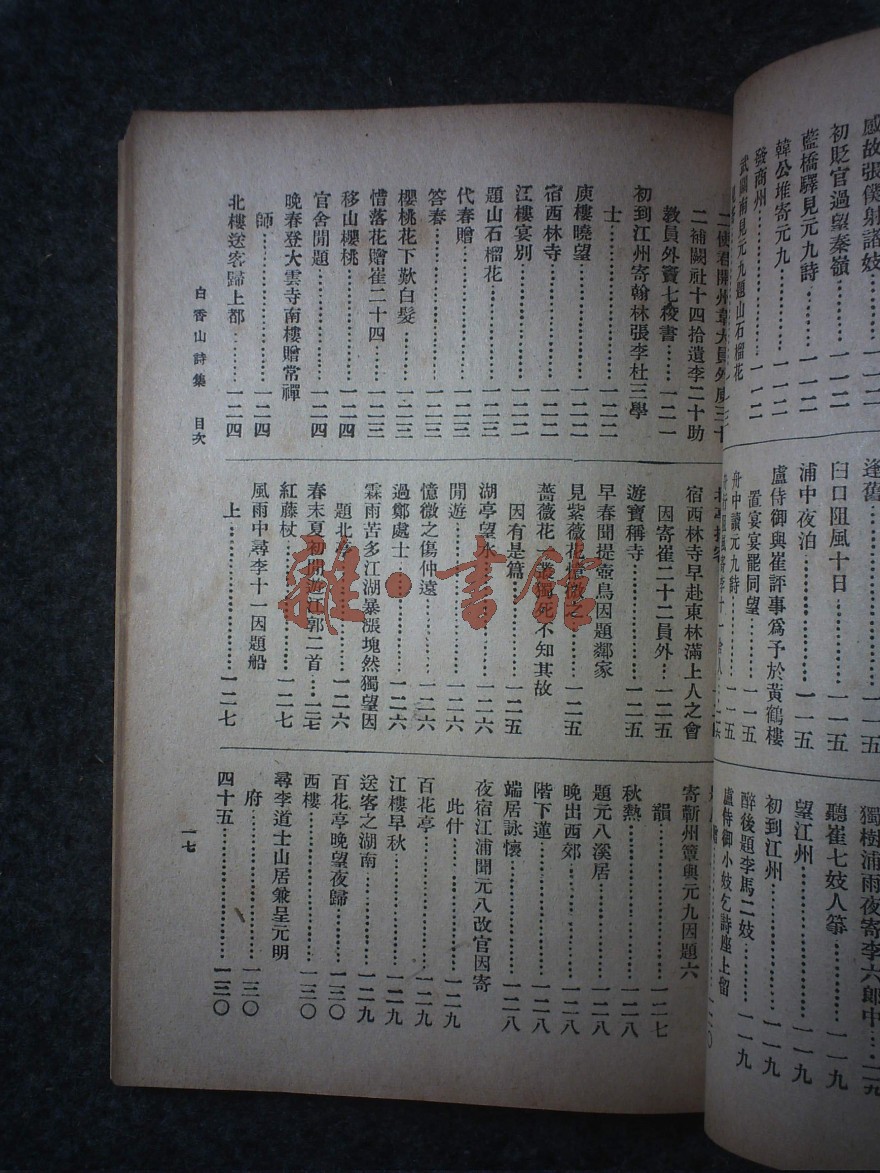 感故張僕射諸妓
初貶官過望秦嶺……一一二
藍橋驛見元九詩……一一二
韓公堆寄元九……一一二
發商州……一一二
武關南見元九題山石榴花
逢舊……一一五
臼口阻風十日……一一五
浦中夜泊……一一五
盧侍御與崔評事爲予於黃鶴樓
置宴宴罷同望……一一五
舟中讀元九詩……一一五
獨樹浦雨夜寄李六郎中…一一九
聽崔七妓人箏……一一九
望江州……一一九
初到江州……一一九
醉後題李馬二妓……一一九
盧侍御小妓乞詩座上留
二補闕杜十四拾遺李二十助
教員外竇七校書……一二一
初到江州寄翰林張李杜三學
士……一二二
庾樓曉望……一二二
宿西林寺……一二二
江樓宴別……一二二
題山石榴花……一二三
代春贈……一二三
答春……一二三
櫻桃花下歎白髮……一二三
惜落花贈崔二十四……一二三
移山櫻桃……一二四
官舍閒題……一二四
晚春登大雲寺南樓贈常禪
師……一二四
北樓送客歸上都……一二四
宿西林寺早赴東林滿上人之會
因寄崔二十二員外…一二五
遊寶稱寺……一二五
早春聞提壺鳥因題鄰家
見紫薇花憶微之……一二五
薔薇花一叢獨死不知其故
因有是篇……一二五
湖亭望水……一二六
閒遊……一二六
憶微之傷仲遠……一二六
過鄭處士……一二六
霖雨苦多江湖暴漲塊然獨望因
題北亭……一二六
春末夏初閒遊江郭二首…一二七
紅藤杖……一二七
風雨中尋李十一因題船
上……一二七
寄蘄州簟與元九因題六
韻……一二七
秋熱……一二八
題元八溪居……一二八
晚出西郊……一二八
階下蓮……一二八
端居詠懷……一二八
夜宿江浦聞元八改官因寄
此什……一二九
百花亭……一二九
江樓早秋……一二九
送客之湖南……一二九
百花亭晚望夜歸……一三〇
西樓……一三〇
尋李道士山居兼呈元明
府……一三〇
四十五……一三〇
白香山詩集 目次
一七
雜·書館